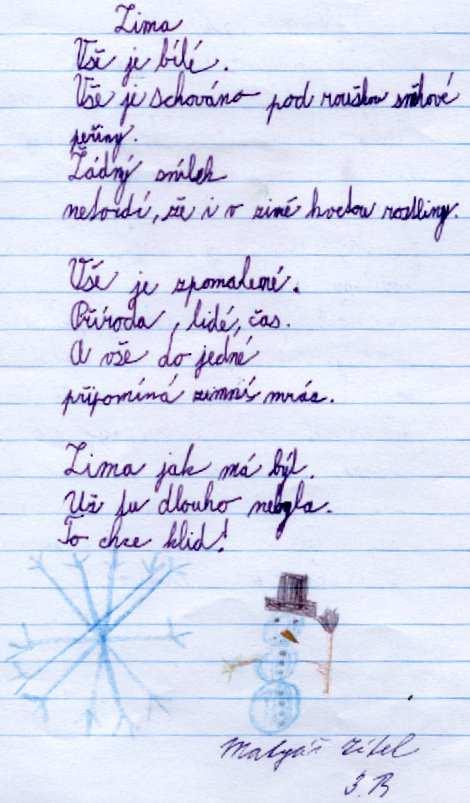 Zima
Vše je bílé.
Vše je schováno pod rouškou sněhové
peřiny.
Žádný smílek
netvrdí, že i v zimě kvetou rostliny.
Vše je zpomalené.
Příroda, lidé, čas.
A vše do jedné
připomíná zimní mráz.
Zima jak má být.
Už tu dlouho nebyla.
To chce klid!
Matyáš
3.B